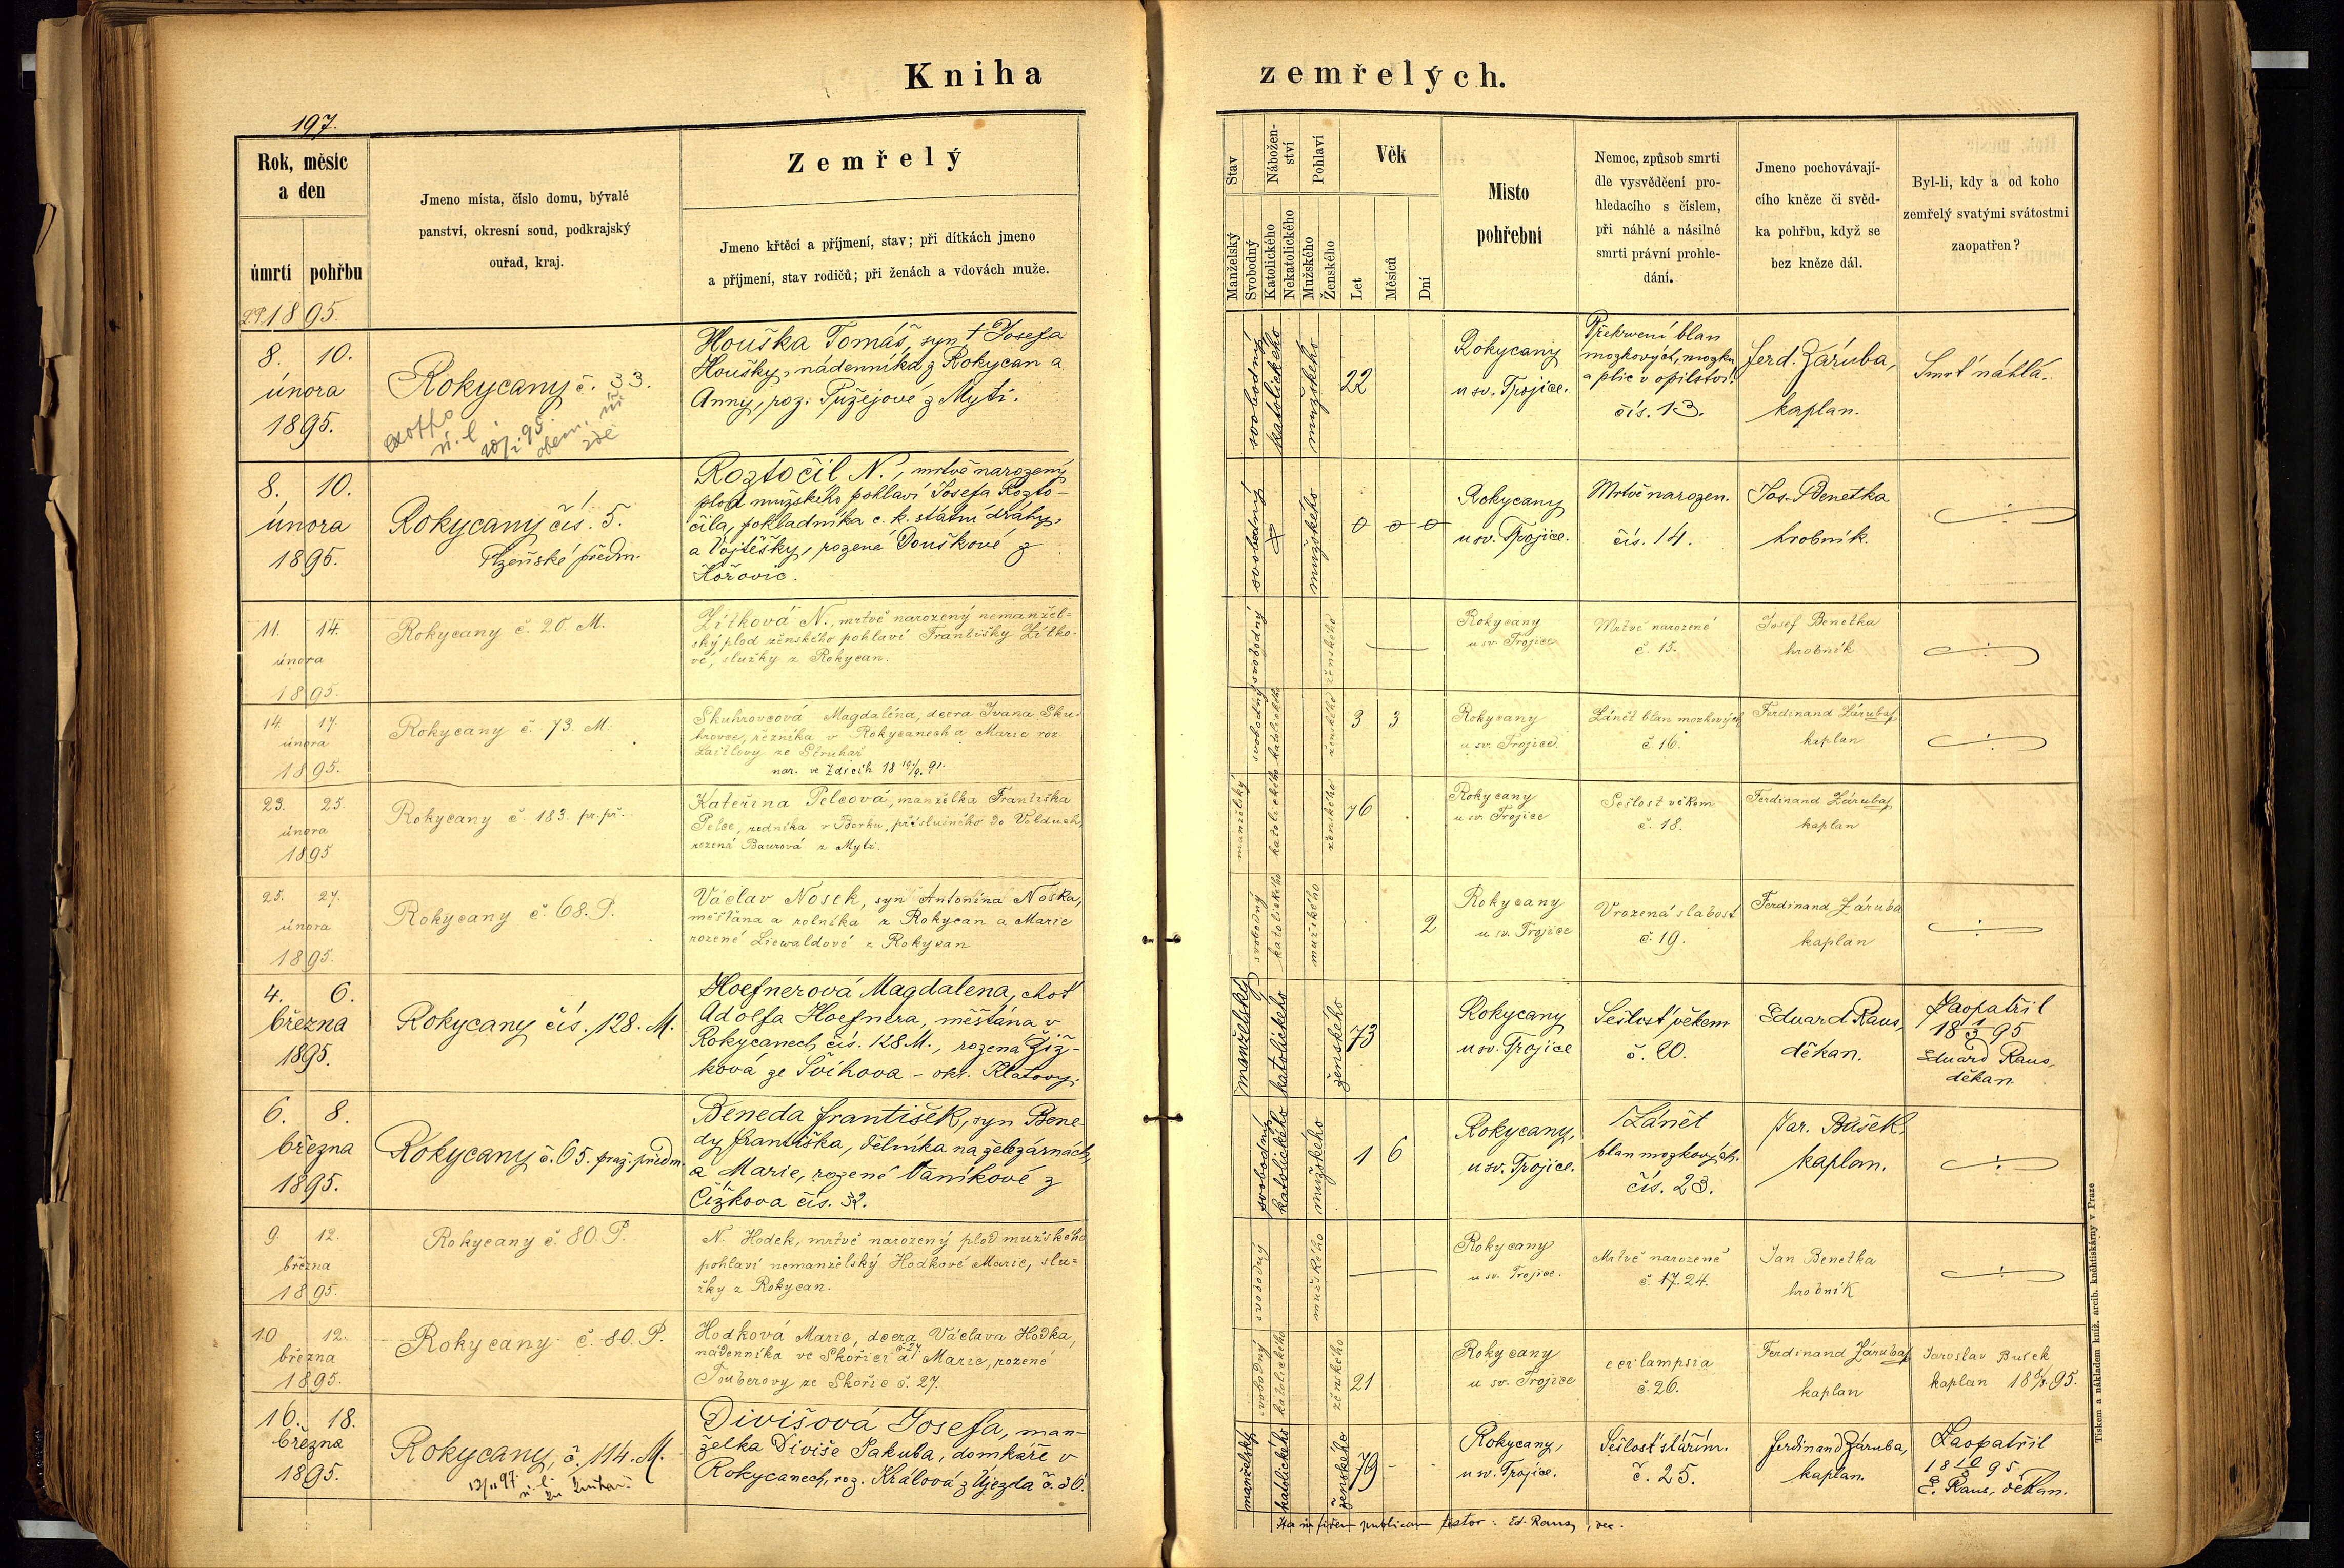 Kniha zemřelých.
197.
Rok, měsíc
a den
úmrtí pohřbu
Jmeno místa, číslo domu, bývalé
panství, okresní soud, podkrajský
ouřad, kraj.
Zemřelý
Jmeno křtěcí a příjmení, stav; při dítkách jmeno
a příjmení, stav rodičů; při ženách a vdovách muže.
Stav
Manželský
Svobodný
Nábožen-
ství
Katolického
Nekatolického
Pohlaví
Mužského
Ženského
Věk
Let
Měsíců
Dní
Místo
pohřební
Nemoc, způsob smrti
dle vysvědčení pro-
hledacího s číslem,
při náhlé a násilné
smrti právní prohle-
dání.
Jmeno pochovávají-
cího kněze či svěd-
ka pohřbu, když se
bez kněze dál.
Byl-li, kdy a od koho
zemřelý svatými svátostmi
zaopatřen?
1895.
8. 10.
února
1895.
Rokycany č. 33.
Houška Tomáš, syn † Josefa
Houšky, nádenníka z Rokycan a
Anny, roz. Pužejové z Mýti.
svobodný
katolického
mužského
22
Rokycany
u sv. Trojice.
Překrvení blan
mozkových, mozku
a plic v opilství.
čís. 13.
Ferd. Záruba,
kaplan.
Smrť náhlá.
8. 10.
února
1895.
Rokycany čís. 5.
Plzeňské předm.
Roztočil N., mrtvě narozený
plod mužského pohlaví Josefa Rozto-
čila, pokladníka c. k. státní dráhy,
a Vojtěšky, rozené Douškové z
Hořovic.
svobodný
mužského
0 0 0
Rokycany
u sv. Trojice.
Mrtvě narozen.
čís. 14.
Jos. Benetka
hrobník.
11. 14.
února
1895.
Rokycany č. 20. M.
Zítková N., mrtvě narozený nemanžel-
ský plod ženského pohlaví Františky Zítko-
vé, služky z Rokycan.
svobodný
ženského
Rokycany
u sv. Trojice
Mrtvě narozené
č. 15.
Josef Benetka
hrobník
14 17.
února
1895.
Rokycany č. 73. M.
Skuhrovcová Magdaléna, dcera Ivana Sku-
hrovce, řezníka v Rokycanech a Marie roz.
nar. ve Zdicích 18 19/9. 91.
svobodný
katolického
ženského
3 3
Rokycany
u sv. Trojice.
Zánět blan mozkových
č. 16.
Ferdinand Záruba
kaplan
23. 25.
února
1895
Rokycany č. 183. pr. př.
Kateřina Pelcová, manželka Františka
Pelce, zedníka v Borku, příslušného do Volduch,
rozená Baurová z Mýti.
manželský
katolického
ženského
76
Rokycany
u sv. Trojice
Sešlost věkem
č. 18.
Ferdinand Záruba
kaplan
25. 27.
února
1895.
Rokycany č. 68. P.
Václav Nosek, syn Antonína Noska,
měšťana a rolníka z Rokycan a Marie
rozené Liewaldové z Rokycan
svobodný
katolického
mužského
2
Rokycany
u sv. Trojice
Vrozená slabost
č. 19.
Ferdinand Záruba
kaplan
4. 6.
března
1895.
Rokycany čís. 128. M.
Hoefnerová Magdalena, choť
Adolfa Hoefnera, měšťána v
Rokycanech čís. 128 M., rozena Žiž-
ková ze Švihova - okr. Klatovy.
manželský
katolického
ženského
73
Rokycany
u sv. Trojice
Sešlosť věkem
č. 20.
Eduard Raus,
děkan.
Zaopatřil
18 1/3 95
Eduard Raus,
děkan
6. 8.
března
1895.
Rokycany č. 65. praž. předm.
Beneda František, syn Bene-
dy Františka, dělníka na železárnách,
a Marie, rozené Vaníkové z
Čížkova čís. 32.
svobodný
katolického
mužského
1 6
Rokycany,
u sv. Trojice.
Zánět
blan mozkových.
čís. 23.
Jar. Bušek,
kaplan.
9. 12.
března
1895.
Rokycany č. 80. P.
N. Hodek, mrtvě narozený plod mužského
pohlaví nemanželský Hodkové Marie, slu-
žky z Rokycan.
svobodný
mužského
Rokycany
u sv. Trojice.
Mrtvě narozené
č. 17. 24.
Jan Benetka
hrobník
10 12.
března
1895.
Rokycany č. 80. P.
Hodková Marie, dcera Václava Hodka,
nádenníka ve Skořici č. 27. a Marie, rozené
Touberovy ze Skořic č. 27.
svobodný
katolického
ženského
21
Rokycany
u sv. Trojice
č. 26.
Ferdinand Záruba
kaplan
Jaroslav Bušek
kaplan
16. 18.
března
1895.
Rokycany, č. 114. M.
Divišová Josefa, man-
želka Diviše Jakuba, domkáře v
Rokycanech, roz. Králová z Újezda č. 36.
manželský
katolického
ženského
79 - -
Rokycany,
u sv. Trojice.
Sešlosť stářím.
č. 25.
Ferdinand Záruba,
kaplan.
Zaopatřil
18 10/3 95
E. Raus, děkan.
Ita in fidem publicam testor: Ed. Raus, dec.
Tiskem a nákladem kníž. arcib. kněhtiskárny v Praze